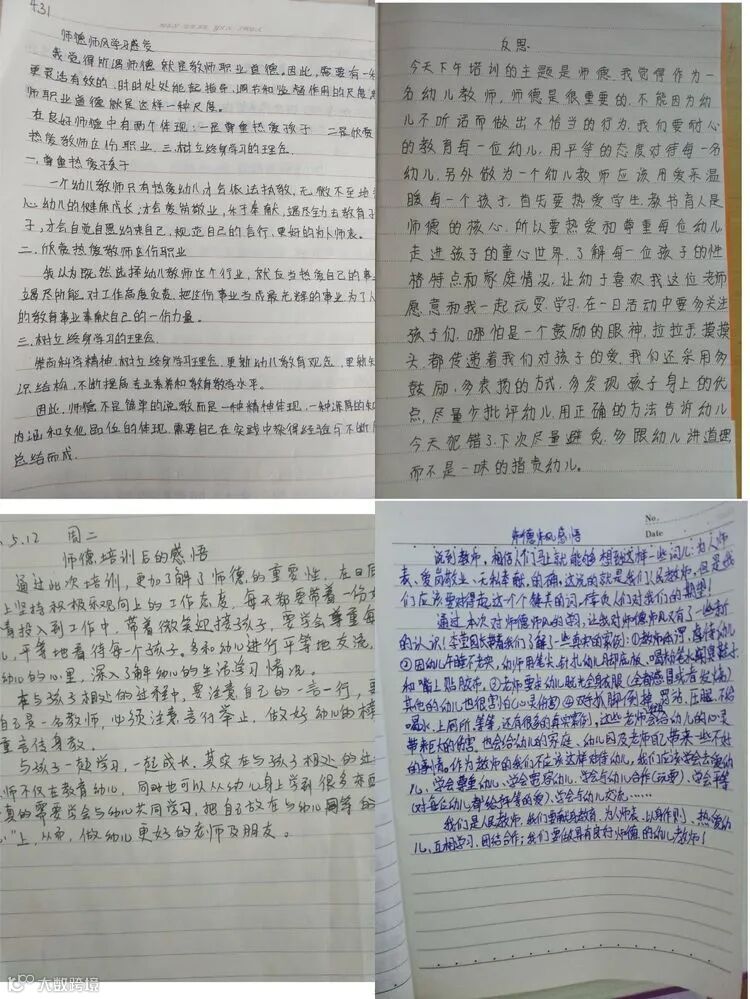 431
师德师风学习感受
我觉得所谓师德就是教师职业道德,因此,需要有一
更灵活有效的、时时处处能起指导、调节和监督作用的尺度,
师职业道德就是这样一种尺度。
在良好师德中有两个体现:一是尊重热爱孩子 二是欣赏
热爱教师这份职业.三.树立终身学习的理念.
一.尊重热爱孩子
一个幼儿教师只有热爱幼儿才会依法执教,无微不至地
心幼儿的健康成长,才会爱岗敬业,乐于奉献,竭尽全力去教育
子,才会自觉自愿约束自己,规范自己的言行,更好的为人师表。
二.欣赏热爱教师这份职业
我认为既然选择幼儿教师这个行业,就应当热爱自己的事
立竭尽所能,对工作高度负责,把这份事业当成最光辉的事业,为了
的教育事业奉献自己的一份力量。
三.树立终身学习的理念.
崇尚科学精神,树立终身学习理念,更新幼儿教育观念,更新
识结构,不断提高专业素养和教育教学水平。
因此,师德不是简单的说教而是一种精神体现,一种深厚的知
内涵和文化品位的体现,需要自己在实践中探得经验与不断
总结而成.
反思
今天下午培训的主题是师德.我觉得作为一
名幼儿教师,师德是很重要的.不能因为幼
儿不听话而做出不恰当的行为.我们要耐心
的教育每一位幼儿,用平等的态度对待每一名
幼儿.另外做为一个幼儿教师应该用爱来温
暖每一个孩子,首先要热爱学生.教书育人是
师德的核心,所以要热爱和尊重每位幼儿,
走进孩子的童心世界,了解每一位孩子的性
格特点和家庭情况,让幼子喜欢我这位老师
愿意和我一起玩耍.学习.在一日活动中要多关注
孩子们,哪怕是一个鼓励的眼神,拉拉手,摸摸
头,都传递着我们对孩子的爱.我们还采用多
鼓励,多表扬的方式,多发现孩子身上的优
点,尽量少批评幼儿,用正确的方法告诉幼儿
今天犯错了,下次尽量避免,多跟幼儿讲道理
而不是一味的指责幼儿。
.5.12 周二
师德培训后的感悟
通过此次培训,更加了解了师德的重要性,在日
上坚持积极乐观向上的工作态度,每天都要带着一份
情投入到工作中,带着微笑迎接孩子,要学会尊重每
儿,平等地看待每个孩子,多和幼儿进行平等地交流,
幼儿的心里,深入了解幼儿的生活学习情况。
在与孩子相处的过程中,要注意自己的一言一行,要
自己是一名教师,必须注意言行举止,做好幼儿的榜
重言传身教。
与孩子一起学习,一起成长,其实在与孩子相处的过
师不仅在教育幼儿,同时也可以从幼儿身上学到很多东西
真的需要学会与幼儿共同学习,把自己放在与幼儿同等的
"上,从而,做幼儿更好的老师及朋友。
No.
Date
师德师风感悟
说到教师,相信人们马上就能够想到这样一些词儿:为人师
表、爱岗敬业、无私奉献,的确,这说的就是我们人民教师,但是我
们应该要对得起这个个赞美的词,不辜负人们对我们的期望!
通过本次对师德师风的学习,让我对师德师风又有了一些新
的认识!李园长带着我们了解了一些真实的案例:①教师体罚,虐待幼儿
②因幼儿午睡不老实,幼师用笔尖、针扎幼儿脚底板
和嘴上贴胶布,③老师要求幼儿脱光全身衣服
其他的幼儿也很害怕(心灵伤害)④对抓脚倒挂、罚站、压腿、不给
喝水、上厕所,等等,还有很多的真实案例,这些老师会给幼儿的心灵
带来巨大的伤害,也会给幼儿的家庭、幼儿园及老师自己带来一些不好
的事情。作为教师的我们不应该这样对待幼儿,我们应该学会去爱幼
儿、学会尊重幼儿、学会宽容幼儿、学会与幼儿合作(玩耍)、学会平等
(对每位幼儿都给同等的爱)、学会与幼儿交流……
我们是人民教师,我们要献身教育,为人师表,以身作则、热爱幼
儿、互相学习、团结合作;我们要做具有良好师德的幼儿教师!
大数跨境